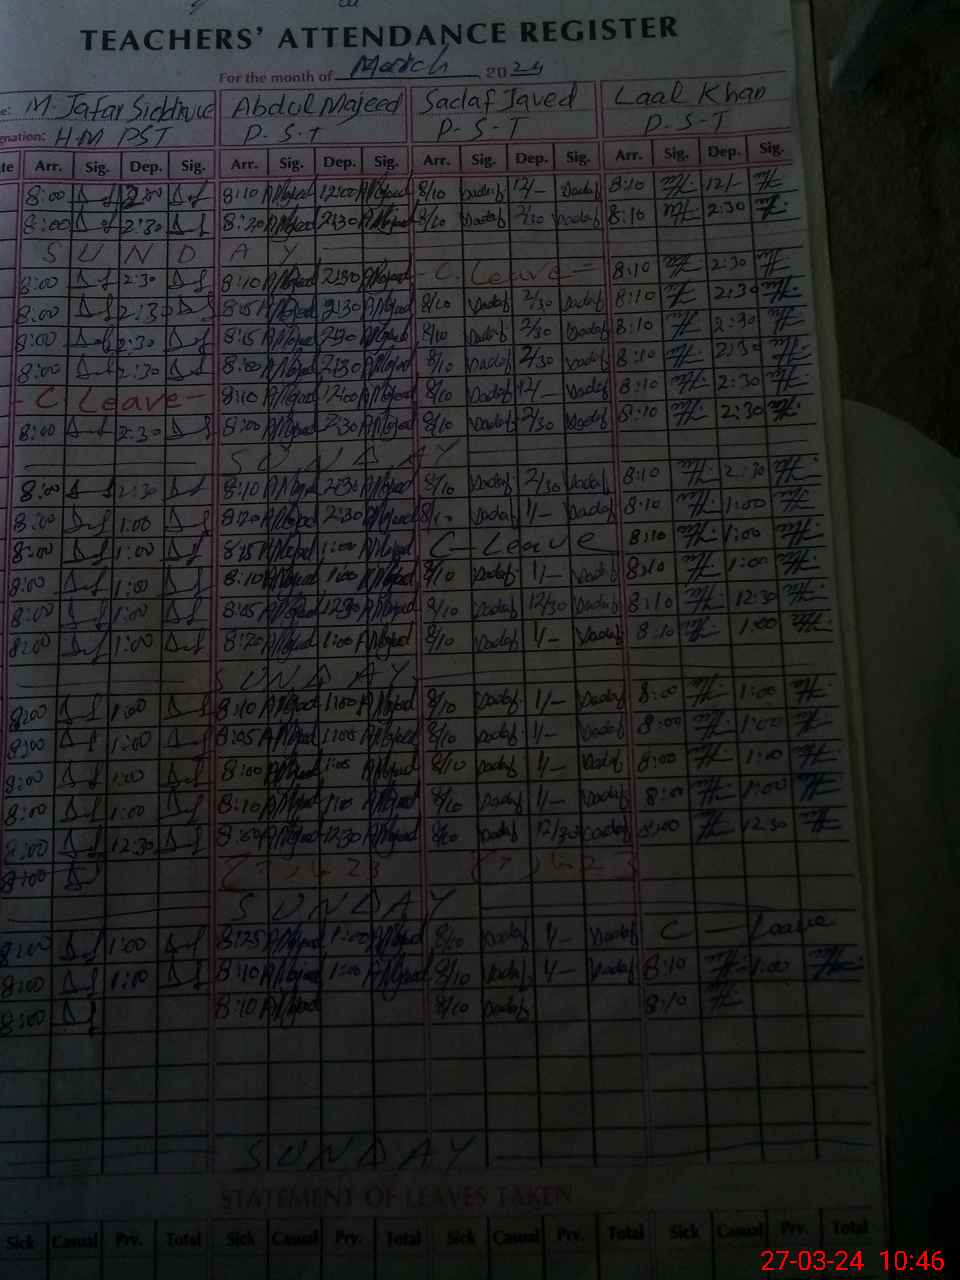 TEACHERS' ATTENDANCE REGISTER
For the month of March 2024
M. Jafar Siddique Abdul Majeed Sadaf Javed Laal Khan
gnation: H.M PST P.S.T P-S-T P.S.T
te Arr. Sig. Dep. Sig. Arr. Sig. Dep. Sig. Arr. Sig. Dep. Sig. Arr. Sig. Dep. Sig.
8:00 8:10 AMajeed 12:00 AMajeed 8/10 Sadaf 12/- Sadaf 8:10 12/-
8:00 2:30 8:20 AMajeed 2:30 AMajeed 8/10 Sadaf 2/30 Sadaf 8:10 2:30
SUNDAY
8:00 2:30 8:10 AMajeed 2:30 AMajeed - C. Leave - 8:10 2:30
8:00 2:30 8:15 AMajeed 2:30 AMajeed 8/10 Sadaf 2/30 Sadaf 8:10 2:30
8:00 2:30 8:15 AMajeed 2:30 AMajeed 8/10 Sadaf 2/30 Sadaf 8:10 2:30
8:00 2:30 8:00 AMajeed 2:30 AMajeed 8/10 Sadaf 2/30 Sadaf 8:10 2:30
- C Leave - 8:10 AMajeed 12:00 AMajeed 8/10 Sadaf 12/- Sadaf 8:10 2:30
8:00 2:30 8:00 AMajeed 2:30 AMajeed 8/10 Sadaf 2/30 Sadaf 8:10 2:30
SUNDAY
8:00 2:30 8:10 AMajeed 2:30 AMajeed 8/10 Sadaf 2/30 Sadaf 8:10 2:30
8:00 1:00 8:20 AMajeed 2:30 AMajeed 8/10 Sadaf 1/- Sadaf 8:10 1:00
8:00 1:00 8:15 AMajeed 1:00 AMajeed C - Leave 8:10 1:00
8:00 1:00 8:10 AMajeed 1:00 AMajeed 8/10 Sadaf 1/- Sadaf 8:10 1:00
8:00 1:00 8:05 AMajeed 12:30 AMajeed 8/10 Sadaf 12/30 Sadaf 8:10 12:30
8:00 1:00 8:20 AMajeed 1:00 AMajeed 8/10 Sadaf 1/- Sadaf 8:10 1:00
SUNDAY
8:00 1:00 8:10 AMajeed 1:00 AMajeed 8/10 Sadaf 1/- Sadaf 8:00 1:00
8:00 1:00 8:05 AMajeed AMajeed 8/10 Sadaf 1/- Sadaf 8:00 1:00
8:00 1:00 8:00 AMajeed AMajeed 8/10 Sadaf 1/- Sadaf 8:00 1:00
8:00 1:00 8:10 AMajeed AMajeed 8/10 Sadaf 1/- Sadaf 8:00 1:00
8:00 12:30 AMajeed 12:30 AMajeed 8/10 Sadaf 12/30 Sadaf 8:00 12:30
8:00
SUNDAY
8:00 1:00 8:25 AMajeed 1:00 AMajeed 8/10 Sadaf 1/- Sadaf C - Leave
8:00 1:00 8:10 AMajeed 1:00 AMajeed 8/10 Sadaf 1/- Sadaf 8:10 1:00
8:00 8:10 AMajeed 8/10 Sadaf 8:10
SUNDAY
STATEMENT OF LEAVES TAKEN
Sick Casual Prv. Total Sick Casual Prv. Total Sick Casual Prv. Total Sick Casual Prv. Total
27-03-24 10:46